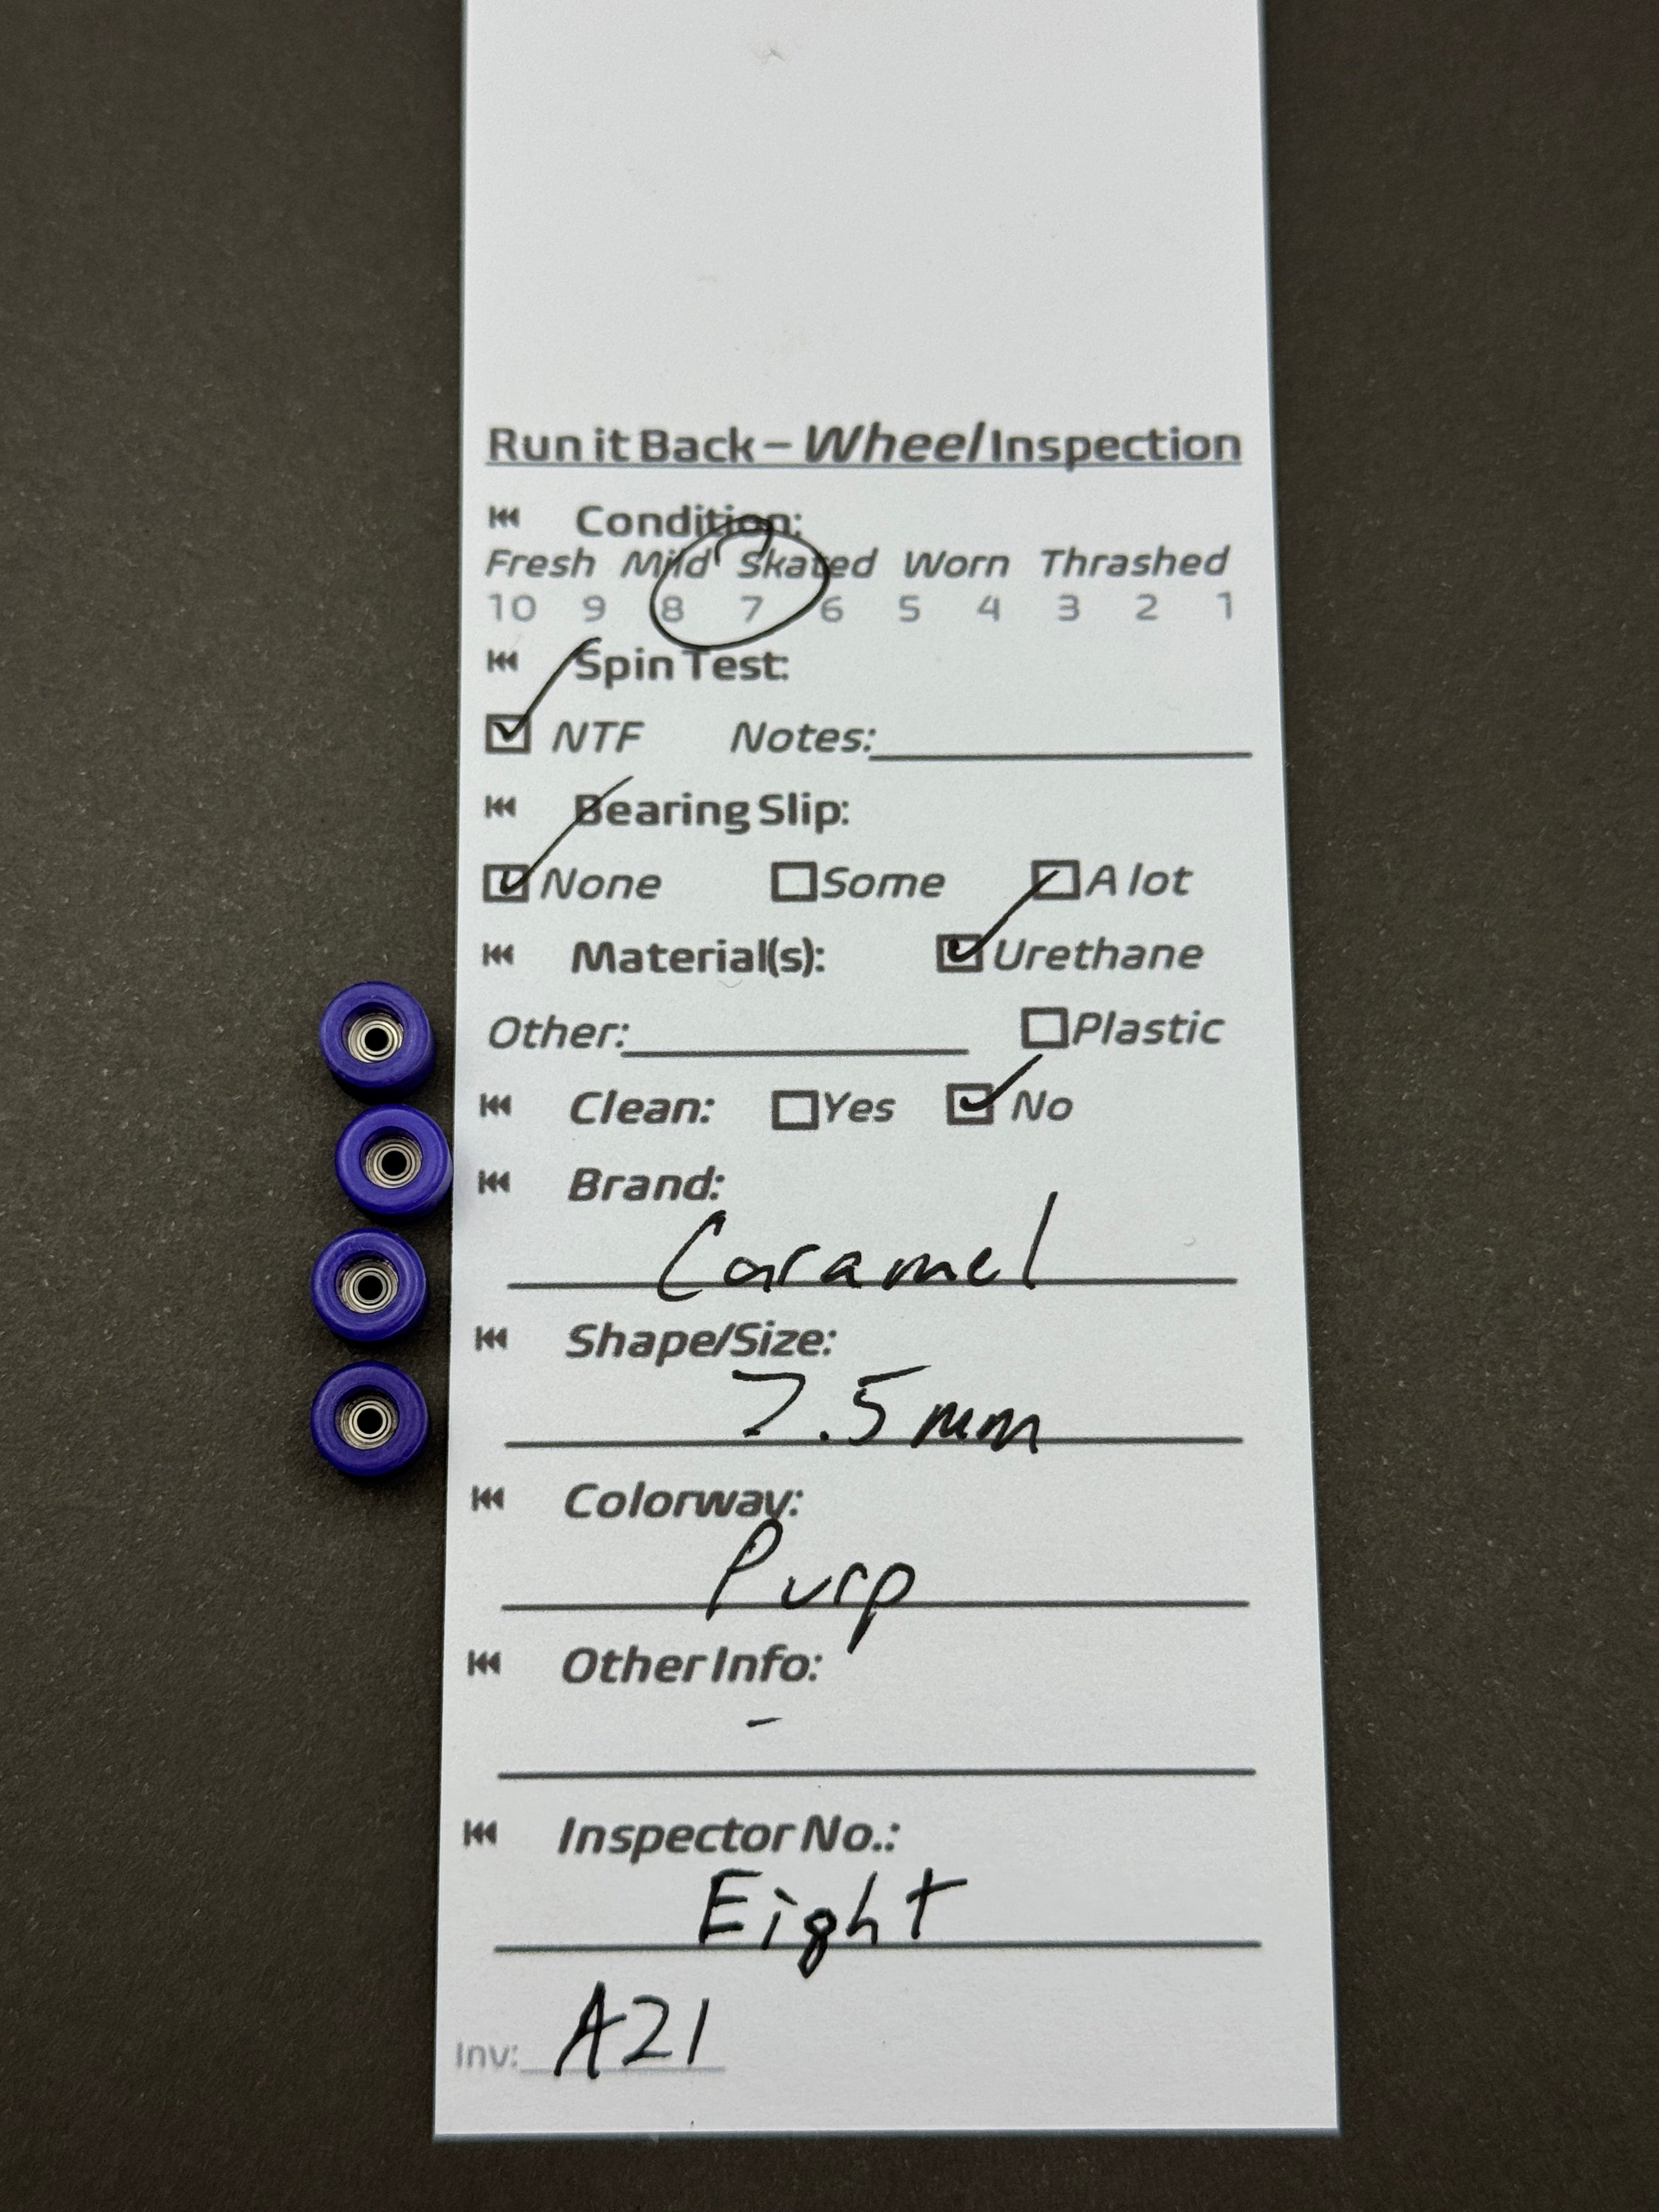 Run it Back – Wheel Inspection
Condition:
Fresh Mild Skated Worn Thrashed
10 9 8 7 6 5 4 3 2 1
Spin Test:
NTF Notes:
Bearing Slip:
None Some A lot
Material(s): Urethane
Other: Plastic
Clean: Yes No
Brand:
Caramel
Shape/Size:
7.5mm
Colorway:
Purp
Other Info:
-
Inspector No.:
Eight
Inv: A21